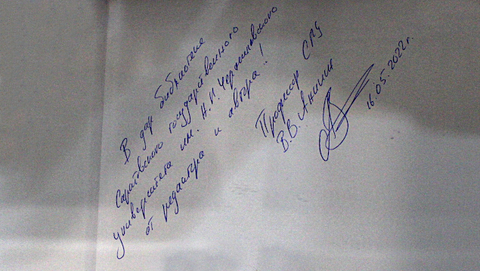 В дар библиотеке
Саратовского государственного
университета им. Н.Г. Чернышевского
от редактора и автора!
Профессор СГУ
В.В. Аникин
16.05.2022г.